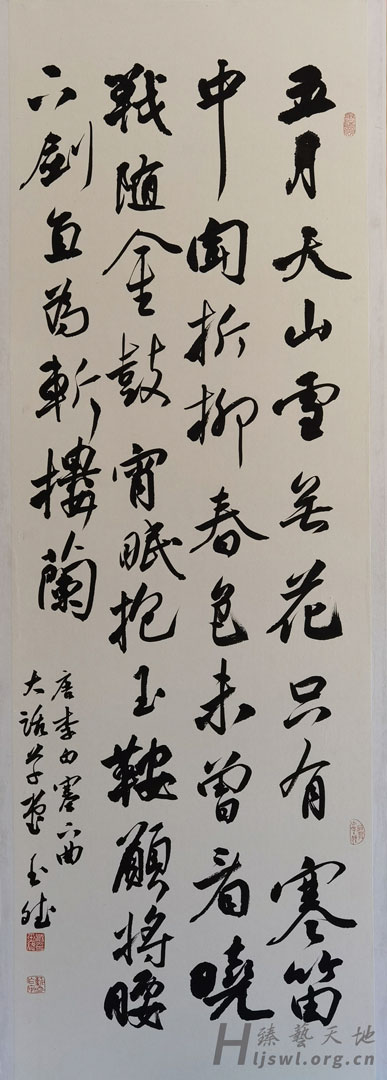 五月天山雪無花只有寒笛
中聞折柳春色未曾看曉
戰随金鼓宵眠抱玉鞍願將腰
下劍直為斬樓蘭
唐李白塞下曲
大
臻藝天地
Hljswl.org.cn